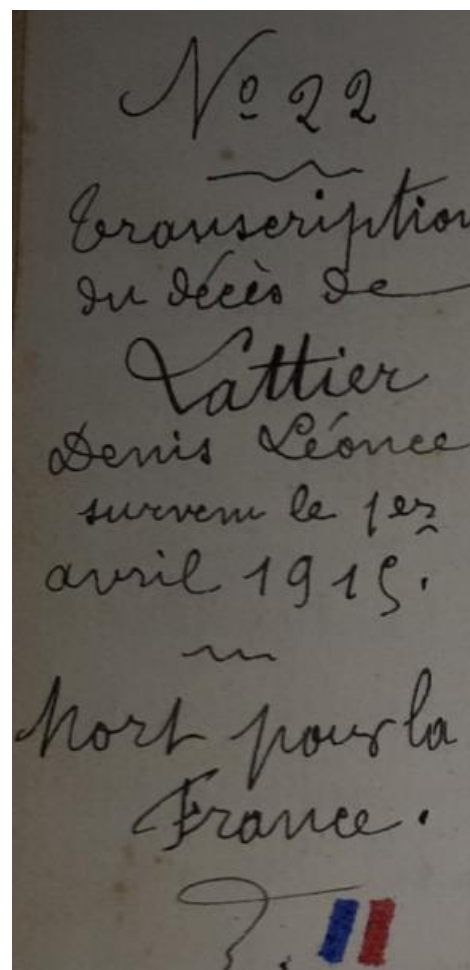 Nº 22
Transcription
du décès de
Lattier
Denis Léonce
survenu le 1er
avril 1915.
Mort pour la
France.